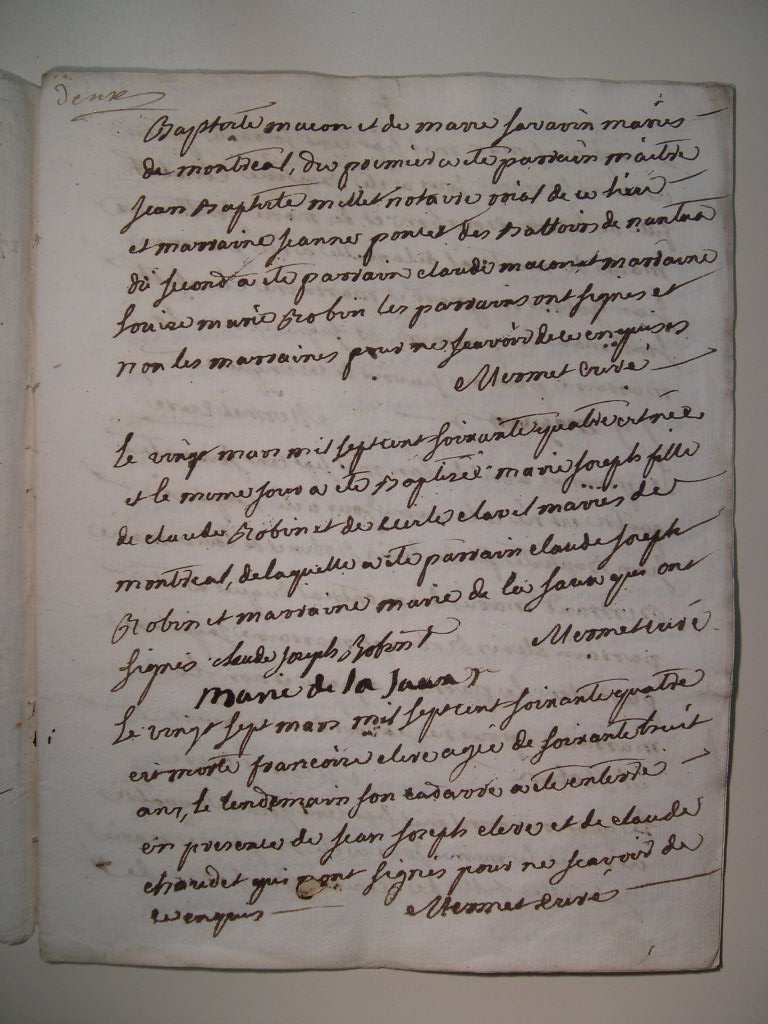 deux
Baptiste macon et de marie savarin mariés
de montreal, du premier a ete parrain maitre
jean Baptiste millet notaire roial de ce lieu
et marraine jeanne poncet des Battoirs de nantua
du second a ete parrain claude macon et marraine
louise marie Robin les parrains ont signes et
non les marraines pour ne scavoir de ce enquises
Mermet curé
Le vingt mars mil sept cent soixante quatre est née
et le meme jour a ete Baptisée marie joseph fille
de claude Robin et de clavel mariés de
montreal, de laquelle a ete parrain claude joseph
Robin et marraine marie de la saux qui ont
signés claude joseph Robin Mermet curé
marie de la saux
Le vingt sept mars mil sept cent soixante quatre
est morte francoise cleve agée de soixante huit
ans, le lendemain son cadavre a ete enterré
en presence de jean joseph cleve et de claude
chaudet qui n'ont signés pour ne scavoir de
ce enquis Mermet curé